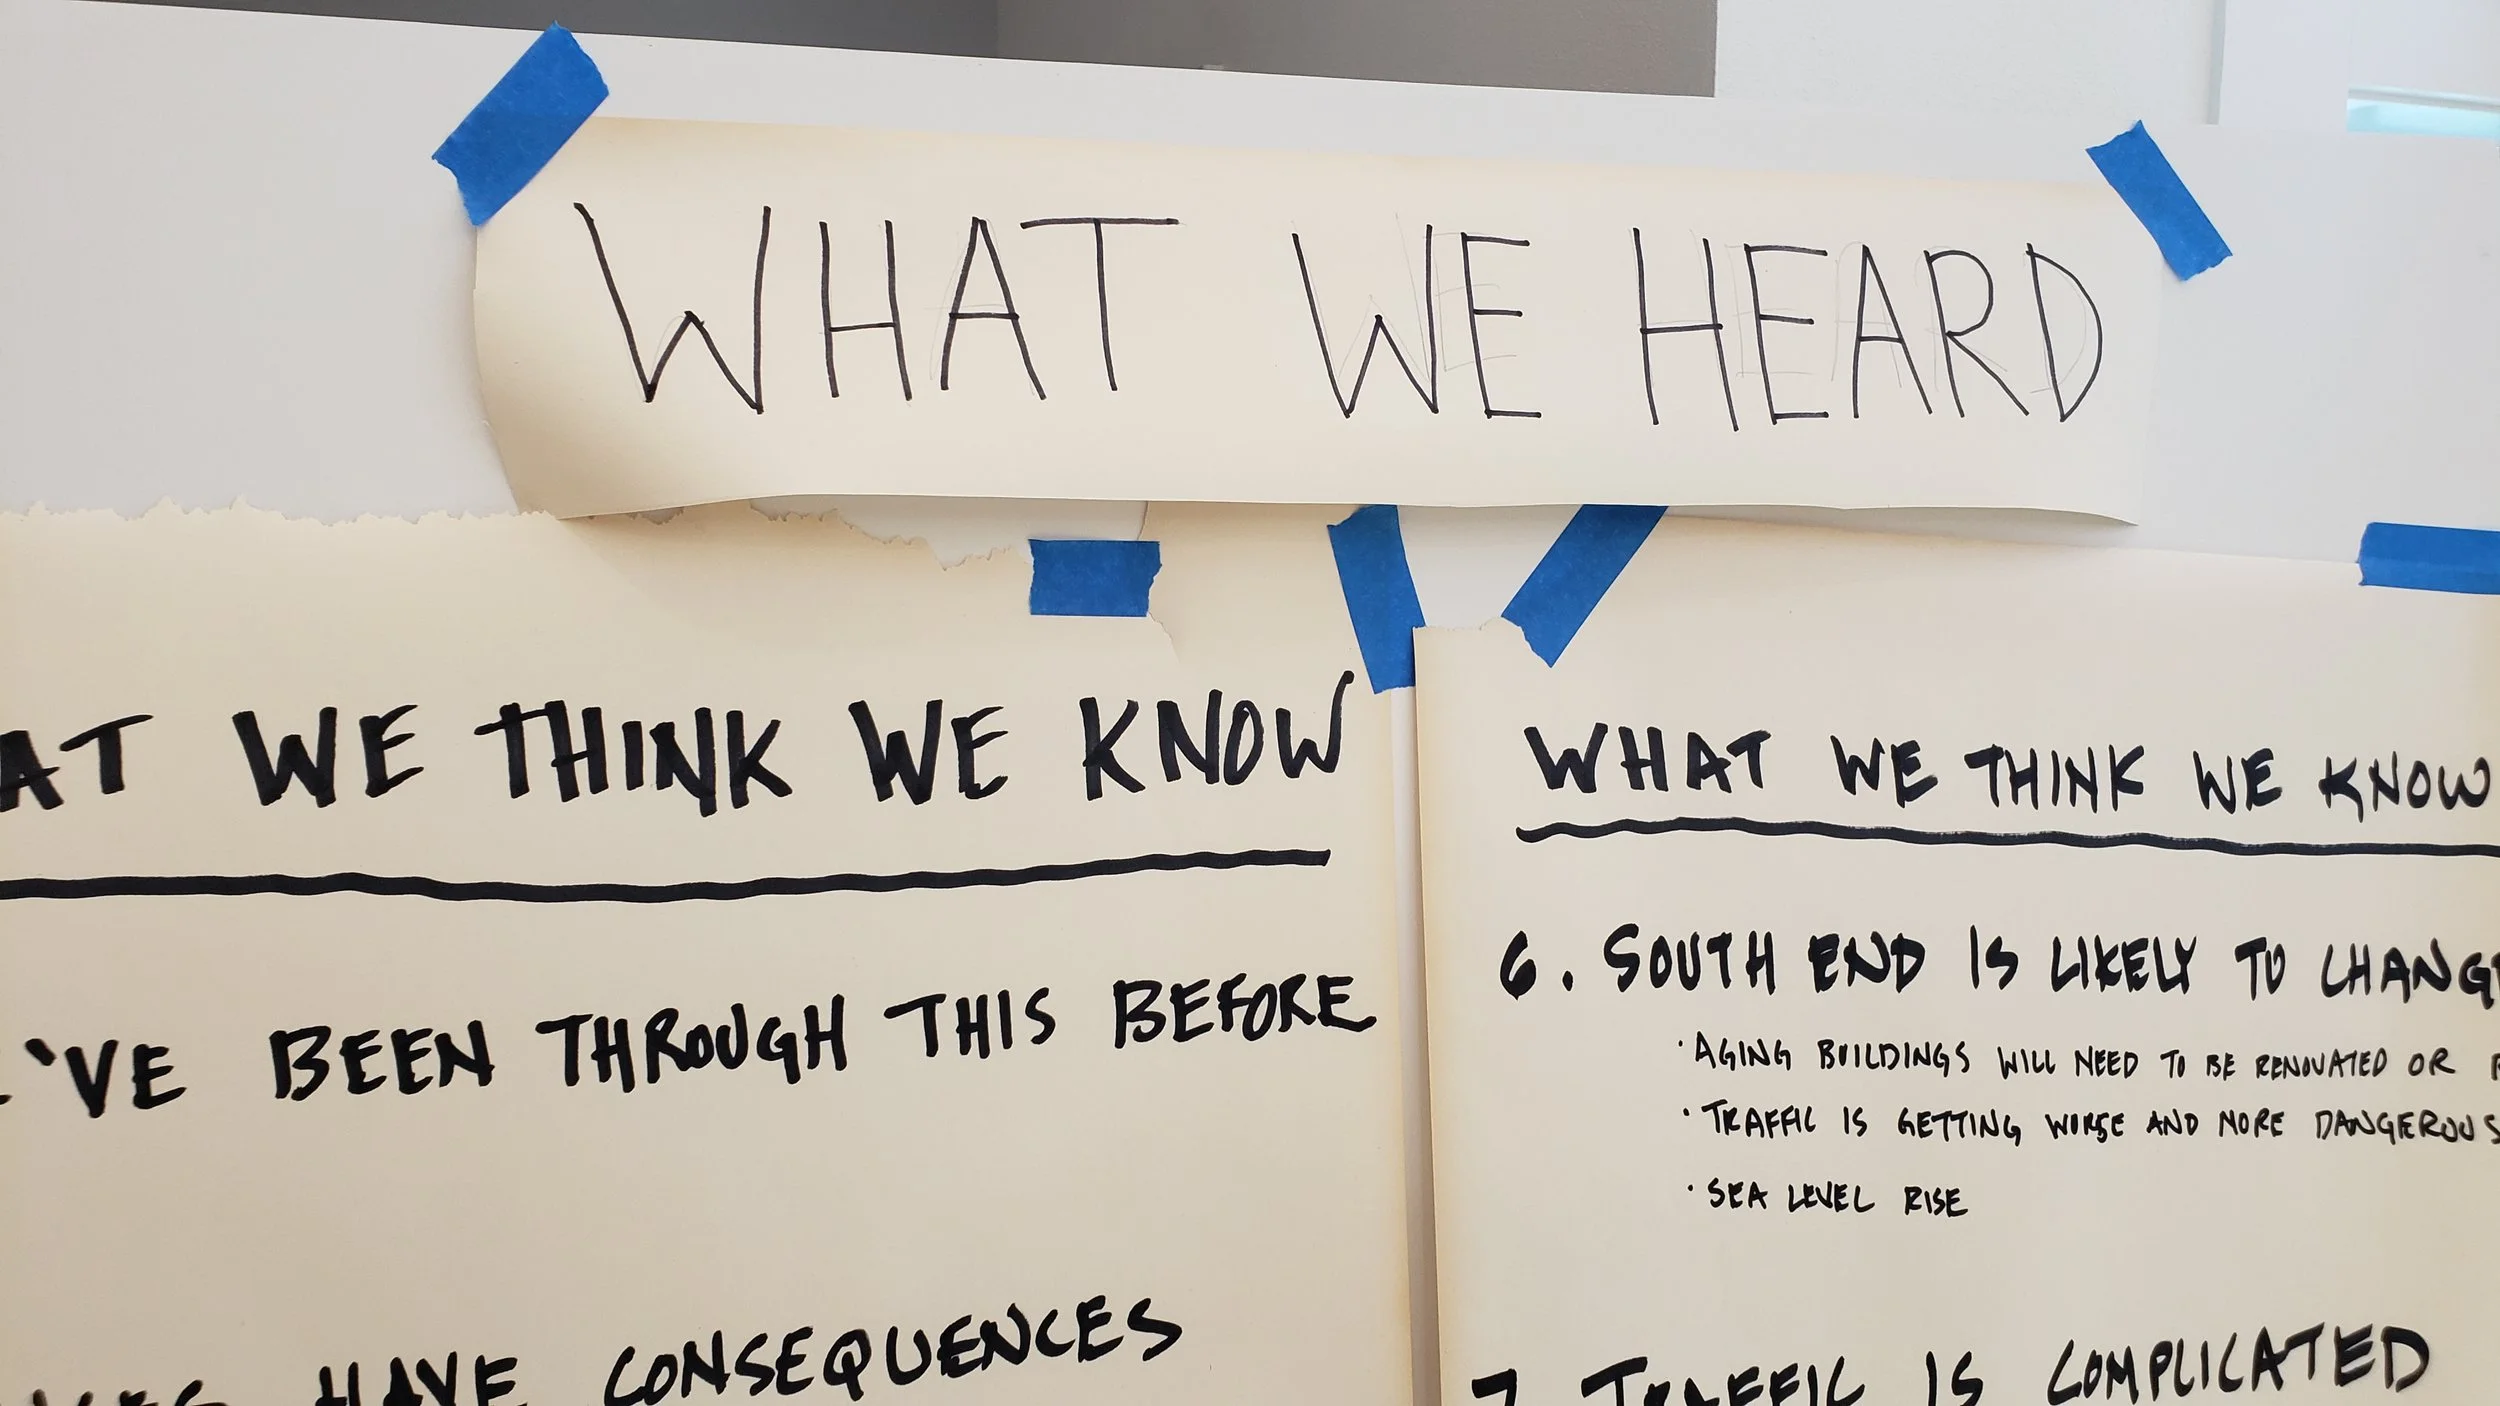 WHAT WE HEARD
AT WE THINK WE KNOW
'VE BEEN THROUGH THIS BEFORE
HAVE CONSEQUENCES
WHAT WE THINK WE KNOW
6. SOUTH END IS LIKELY TO CHANG
· AGING BUILDINGS WILL NEED TO BE RENOVATED OR
· TRAFFIC IS GETTING WORSE AND MORE DANGEROUS
· SEA LEVEL RISE
7 TRAFFIC IS COMPLICATED